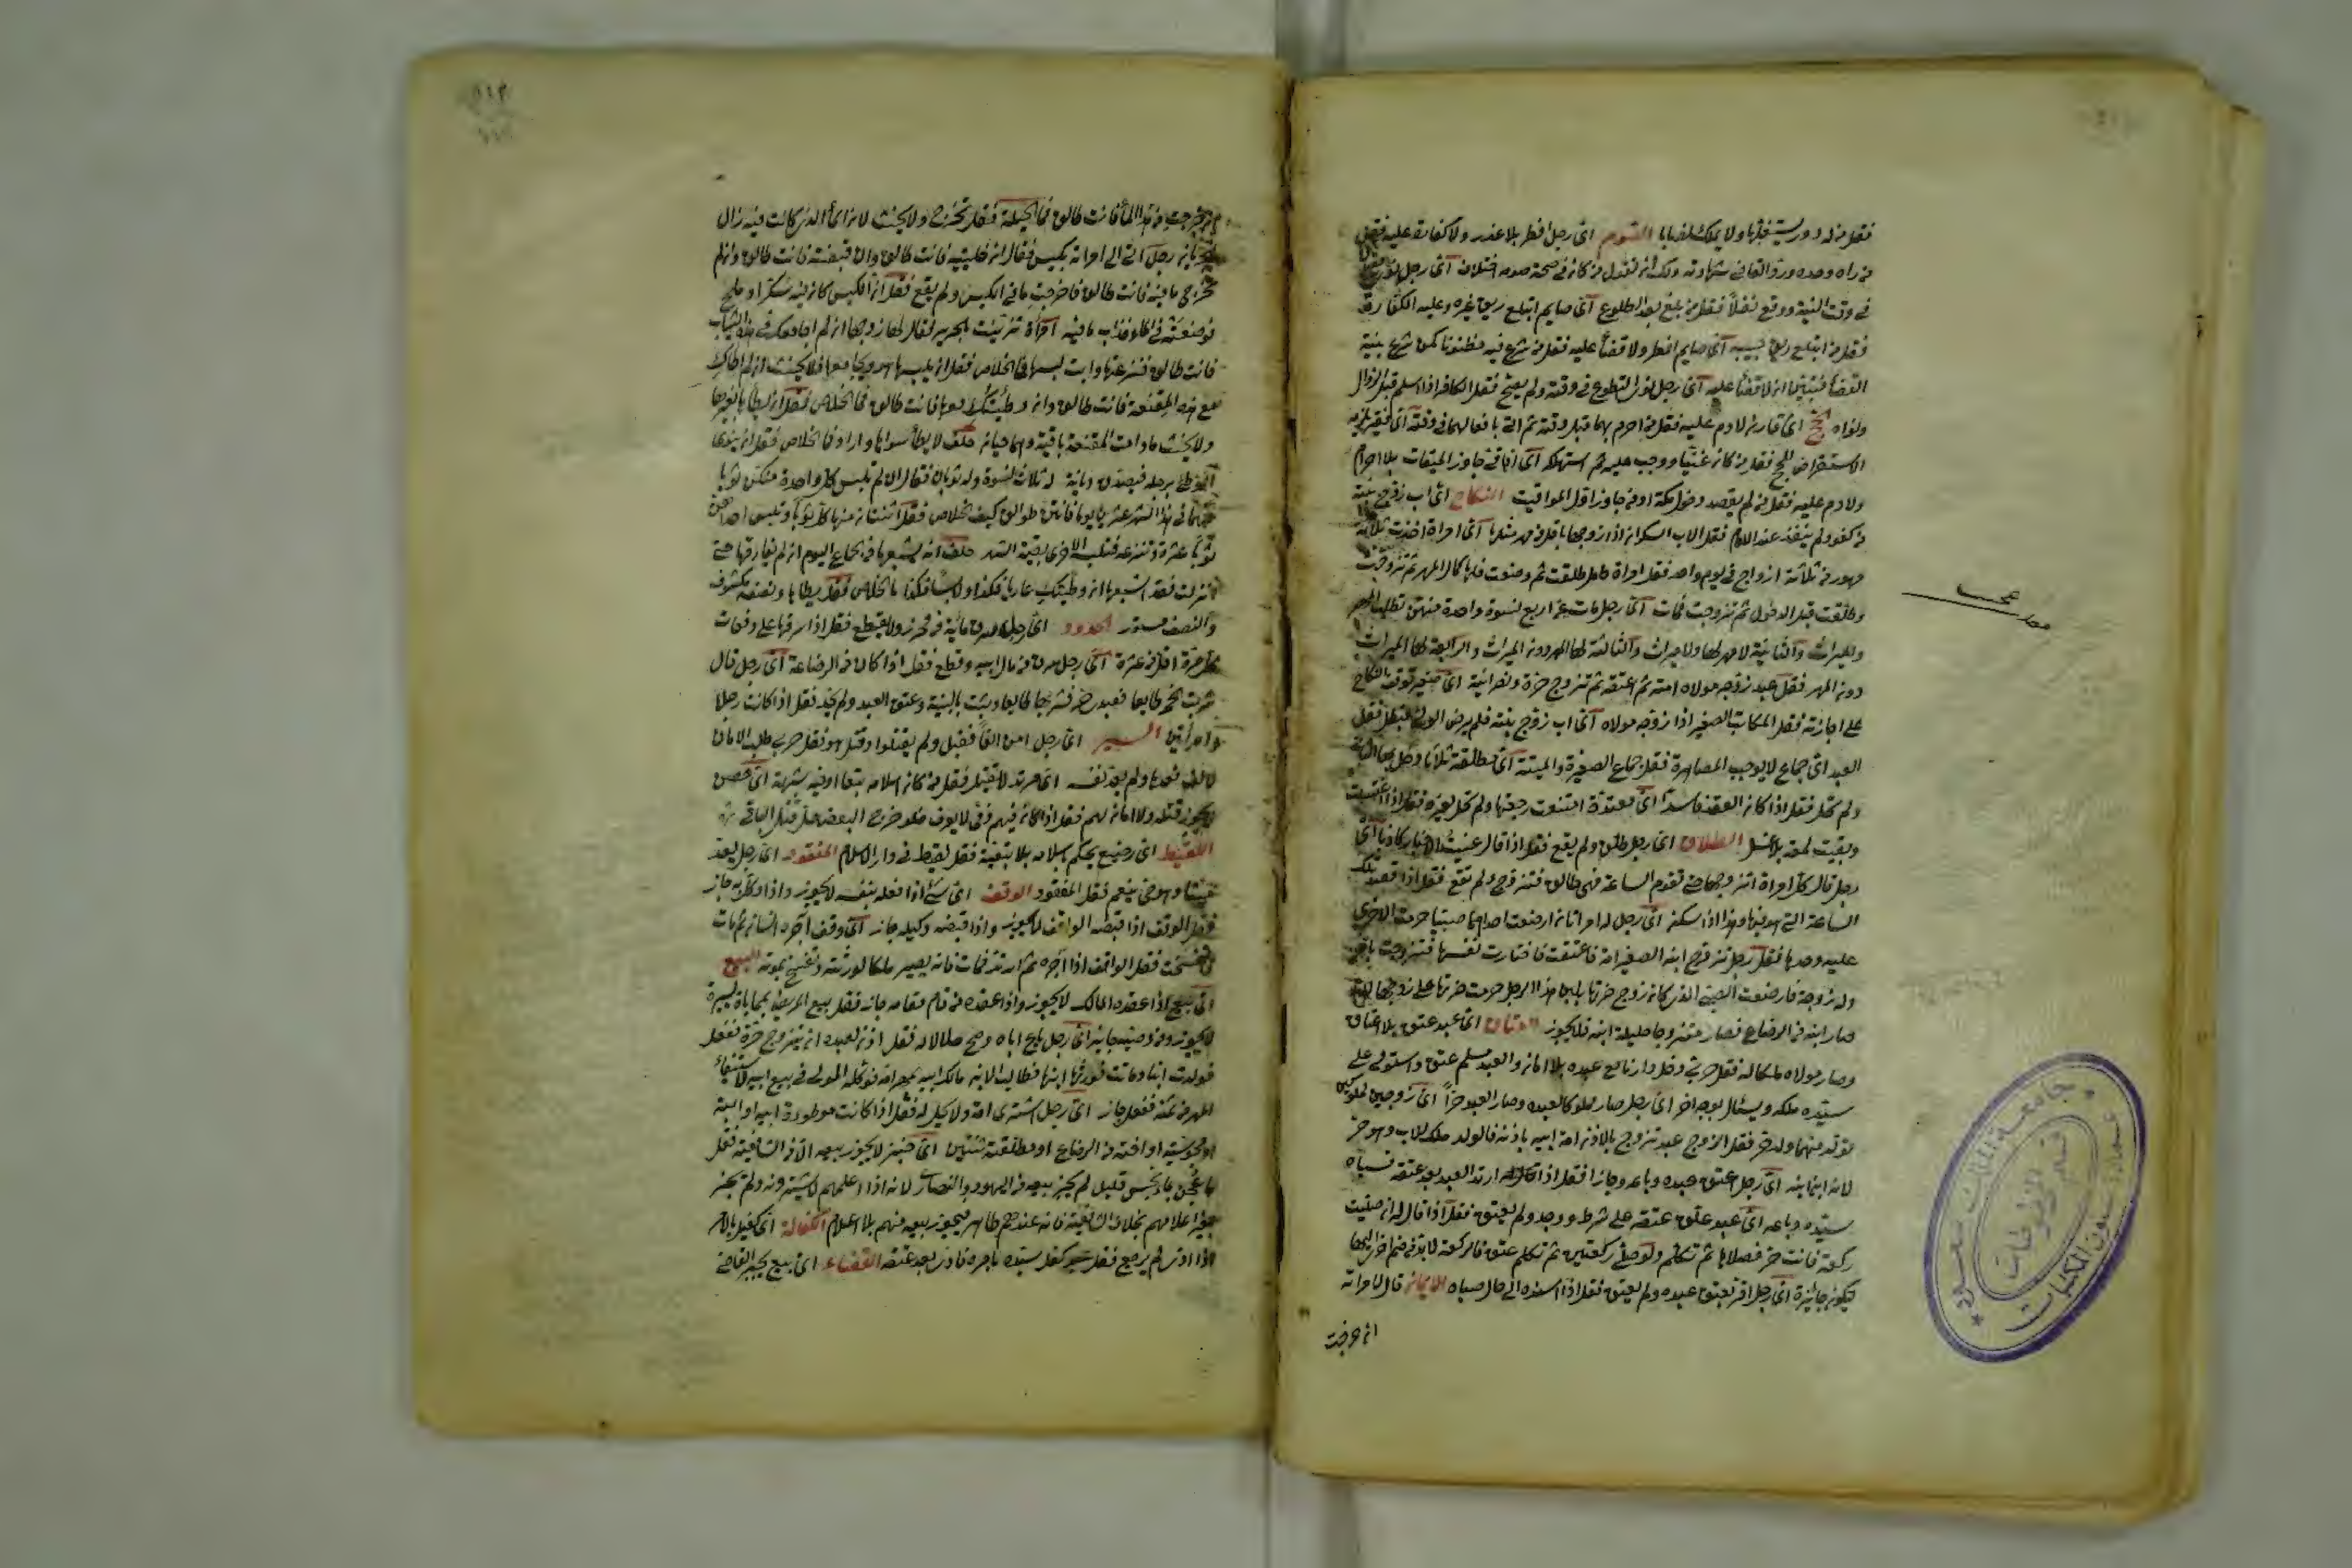 فقل من له دور يستغلها ولا يملك نصابا الصوم اي رجل افطر بلا عذر ولا كفارة عليه فقل
من راه وحده ورد القاضي شهادته ولك ان تقول من كان في صحة صومه اختلاف اي رجل نوى
في وقت النية ووقع نفلا فقل من بلغ بعد الطلوع اي صايم ابتلع ريق غيره وعليه الكفارة
فقل من ابتلع ريق حبيبه اي صايم افطر ولا قضاء عليه فقل من شرع فيه مظنونا كمن شرع بنية
القضاء فتبين ان لا قضاء عليه اي رجل نوى التطوع في وقته ولم يصح فقل الكافر اذا اسلم قبل الزوال
ونواه الحج اي قارن لا دم عليه فقل من احرم بهما قبل وقته ثم اتى بافعالهما في وقته اي فقير يلزمه
الاستقراض للحج فقل من كان غنيا ووجب عليه ثم استهلكه اي افاقي جاوز الميقات بلا احرام
ولا دم عليه فقل من لم يقصد دخول مكة او من جاوز اول المواقيت النكاح اي اب زوج بنته
من كفو ولم ينفذ عند الامام فقل الاب السكران اذا زوجها باقل من مهر مثلها اي امراة اخذت ثلاثة
مهور من ثلاثة ازواج في يوم واحد فقل امراة حامل طلقت ثم وضعت فلها كمال المهر ثم تزوجت
وطلقت قبل الدخول ثم تزوجت فمات اي رجل مات عن اربع نسوة واحدة منهن تطلب المهر
والميراث والثانية لا مهر لها ولا ميراث والثالثة لها المهر دون الميراث والرابعة لها الميراث
دون المهر فقل عبد زوجه مولاه امته ثم اعتقه ثم تزوج حرة ونصرانية اي صغير توقف النكاح
على اجازته فقل المكاتب الصغير اذا زوجه مولاه اي اب زوج بنته فلم يرض الولي بطل فقل
العبد اي جماع لا يوجب المصاهرة فقل جماع الصغيرة والميتة اي مطلقة ثلاثا ودخل بها الثاني
ولم تحل فقل اذا كان العقد فاسدا اي معتدة امتنعت رجعتها ولم تحل لغيره فقل اذا اغتسلت
وبقيت لمعة بلا غسل الطلاق اي رجل طلق ولم يقع فقل اذا قال عنيت الاخبار كاذبا اي
رجل قال كل امراة اتزوجها حتى تقوم الساعة فهي طالق فتزوج ولم تقع فقل اذا قصد تلك
الساعة التي هو فيها وهذا اذا سكن اي رجل له امراتان ارضعت احداهما صبيا حرمت الاخرى
عليه وحدها فقل رجل تزوج ابنه الصغير امة فاعتقت فاختارت نفسها فتزوجت باخر
وله زوجة فارضعت الصبي الذي كان زوج ضرتها بلبن هذا الرجل حرمت ضرتها على زوجها لانه
صار ابنه من الرضاع فصار متزوجا حليلة ابنه فلا يجوز العتاق اي عبد عتق بلا اعتاق
وصار مولاه ملكا له فقل حربي دخل دارنا مع عبده بلا امان والعبد مسلم عتق واستولى على
سيده ملكه ويسال بوجه اخر اي رجل صار مملوكا لعبده وصار العبد حرا اي زوجين مملوكين
تولد منهما ولد حر فقل الزوج عبد تزوج بالاذن امة ابيه باذنه فالولد ملك للاب وهو حر
لانه ابن ابنه اي رجل اعتق عبده وباعه وجاز فقل اذا ارتد العبد بعد عتقه فسباه
سيده وباعه اي عبد علق عتقه على شرط ووجد ولم يعتق فقل اذا قال له ان صليت
ركعة فانت حر فصلاها ثم تكلم ولو صلى ركعتين ثم تكلم عتق فالركعة لا بد من ضم اخرى اليها
ليكون جائزة اي رجل اقر بعتق عبده ولم يعتق فقل اذا اسنده الى حال صباه الايمان قال لامراته
ان خرجت
ان خرجت من هذا الماء فانت طالق فما الحيلة فقل تخرج ولا يحنث لان الماء الذي كانت فيه زال
بجريانه رجل اتى الى امراته بكيس فقال ان حللتيه فانت طالق وان قبضته فانت طالق وان لم
تخرجي ما فيه فانت طالق فاخرجت ما في الكيس ولم يقع فقل ان الكيس كان فيه سكر او ملح
فوضعته في الماء فذاب ما فيه امراة تزينت بالحرير فقال لها زوجها ان لم اجامعك في هذه الثياب
فانت طالق فنزعتها وابت لبسها فما الخلاص فقل ان يلبسها هو ويجامعها فلا يحنث ان لم اطاك
مع هذه المقنعة فانت طالق وان وطئتك بها فانت طالق فما الخلاص فقل ان يطاها بغيرها
ولا يحنث ما دامت المقنعة باقية وهما حيان حلف لا يطا سواها واراد فما الخلاص فقل ان ينوي
الوطئ برجله فيصدق ديانة له ثلاث نسوة وله ثوبان فقال ان لم تلبس كل واحدة منكن ثوبا
منهما في هذا الشهر عشرين يوما فانتن طوالق كيف الخلاص فقل اثنتان منها كل ثوبا وتلبس احداهن
ثوبا عشرة وتنزعه فتلبسه الاخرى بقية الشهر حلف انه يشبعها من الجماع اليوم ان لم يفارقها حتى
انزلت فقد اشبعها ان وطيتك عاريا فكذا ولابسا فكذا ما الخلاص فقل يطاها ونصفه مكشوف
والنصف مستور الحدود اي رجل سرق مائة من حرز ولا يقطع فقل اذا سرقها على دفعات
كل مرة اقل من عشرة اي رجل سرق من مال ابيه وقطع فقل اذا كان من الرضاعة اي رجل قال
شربت الخمر طايعا فعبده حر فشربها طايعا وثبت بالبينة وعتق العبد ولم يحد فقل اذا كانت رجلا
وامراتين السير اي رجل امن الفا فقبل ولم يقتلوا وقتل هو فقل حربي طلب الامان
لالف فعدها ولم يعد نفسه اي مرتد لا يقتل فقل من كان اسلامه تبعا او فيه شبهة اي حصن
لا يجوز قتله ولا امان لهم فقل اذا كان فيهم ذمي لا يعرف فلو خرج البعض حل قتل الباقي
اللقيط اي رضيع يحكم باسلامه بلا تبعية فقل لقيط في دار الاسلام المفقود اي رجل يعد
ميتا وهو حي ينعم فقل المفقود الوقف اي شئ اذا فعله بنفسه لا يجوز واذا وكل به جاز
فقل الوقف اذا قبضه الواقف لا يجوز واذا قبضه وكيله جاز اي وقف آجره انسان ثم مات
فانفسخت فقل الواقف اذا آجره ثم ارتد فمات فانه يصير ملكا لورثته وتنفسخ بموته البيع
اي بيع اذا عقده المالك لا يجوز واذا عقده من قام مقامه جاز فقل بيع المريض بمحاباة يسيرة
لا يجوز ومن وصيه جايز اي رجل باع اباه وصح حلالا له فقل اذن لعبده ان يتزوج حرة ففعل
فولدت ابنا وماتت فورثها ابنها فطالب الابن مالك ابيه بمهر امه فوكله المولى في بيع ابيه لاستيفاء
المهر من ثمنه ففعل جاز اي رجل اشترى امة ولا يحل له فقل اذا كانت موطوءة ابيه او ابنه
او مجوسية او اخته من الرضاع او مطلقته ثنتين اي خبز لا يجوز بيعه الا من الشافعية فقل
ما عجن بماء نجس قليل لم يجز بيعه من اليهود والنصارى لانه اذا اعلمهم لا يشترونه ولم يجز
بغير اعلامهم بخلاف الشافعية فانه عندهم طاهر فيجوز بيعه منهم بلا اعلام الكفالة اي كفيل بالامر
اذا ادى لم يرجع فقل عبد كفل سيده بامره فادى بعد عتقه القضاء اي بيع يجبر القاضي
جامعة الملك سعود
عمادة شؤون المكتبات
قسم المخطوطات